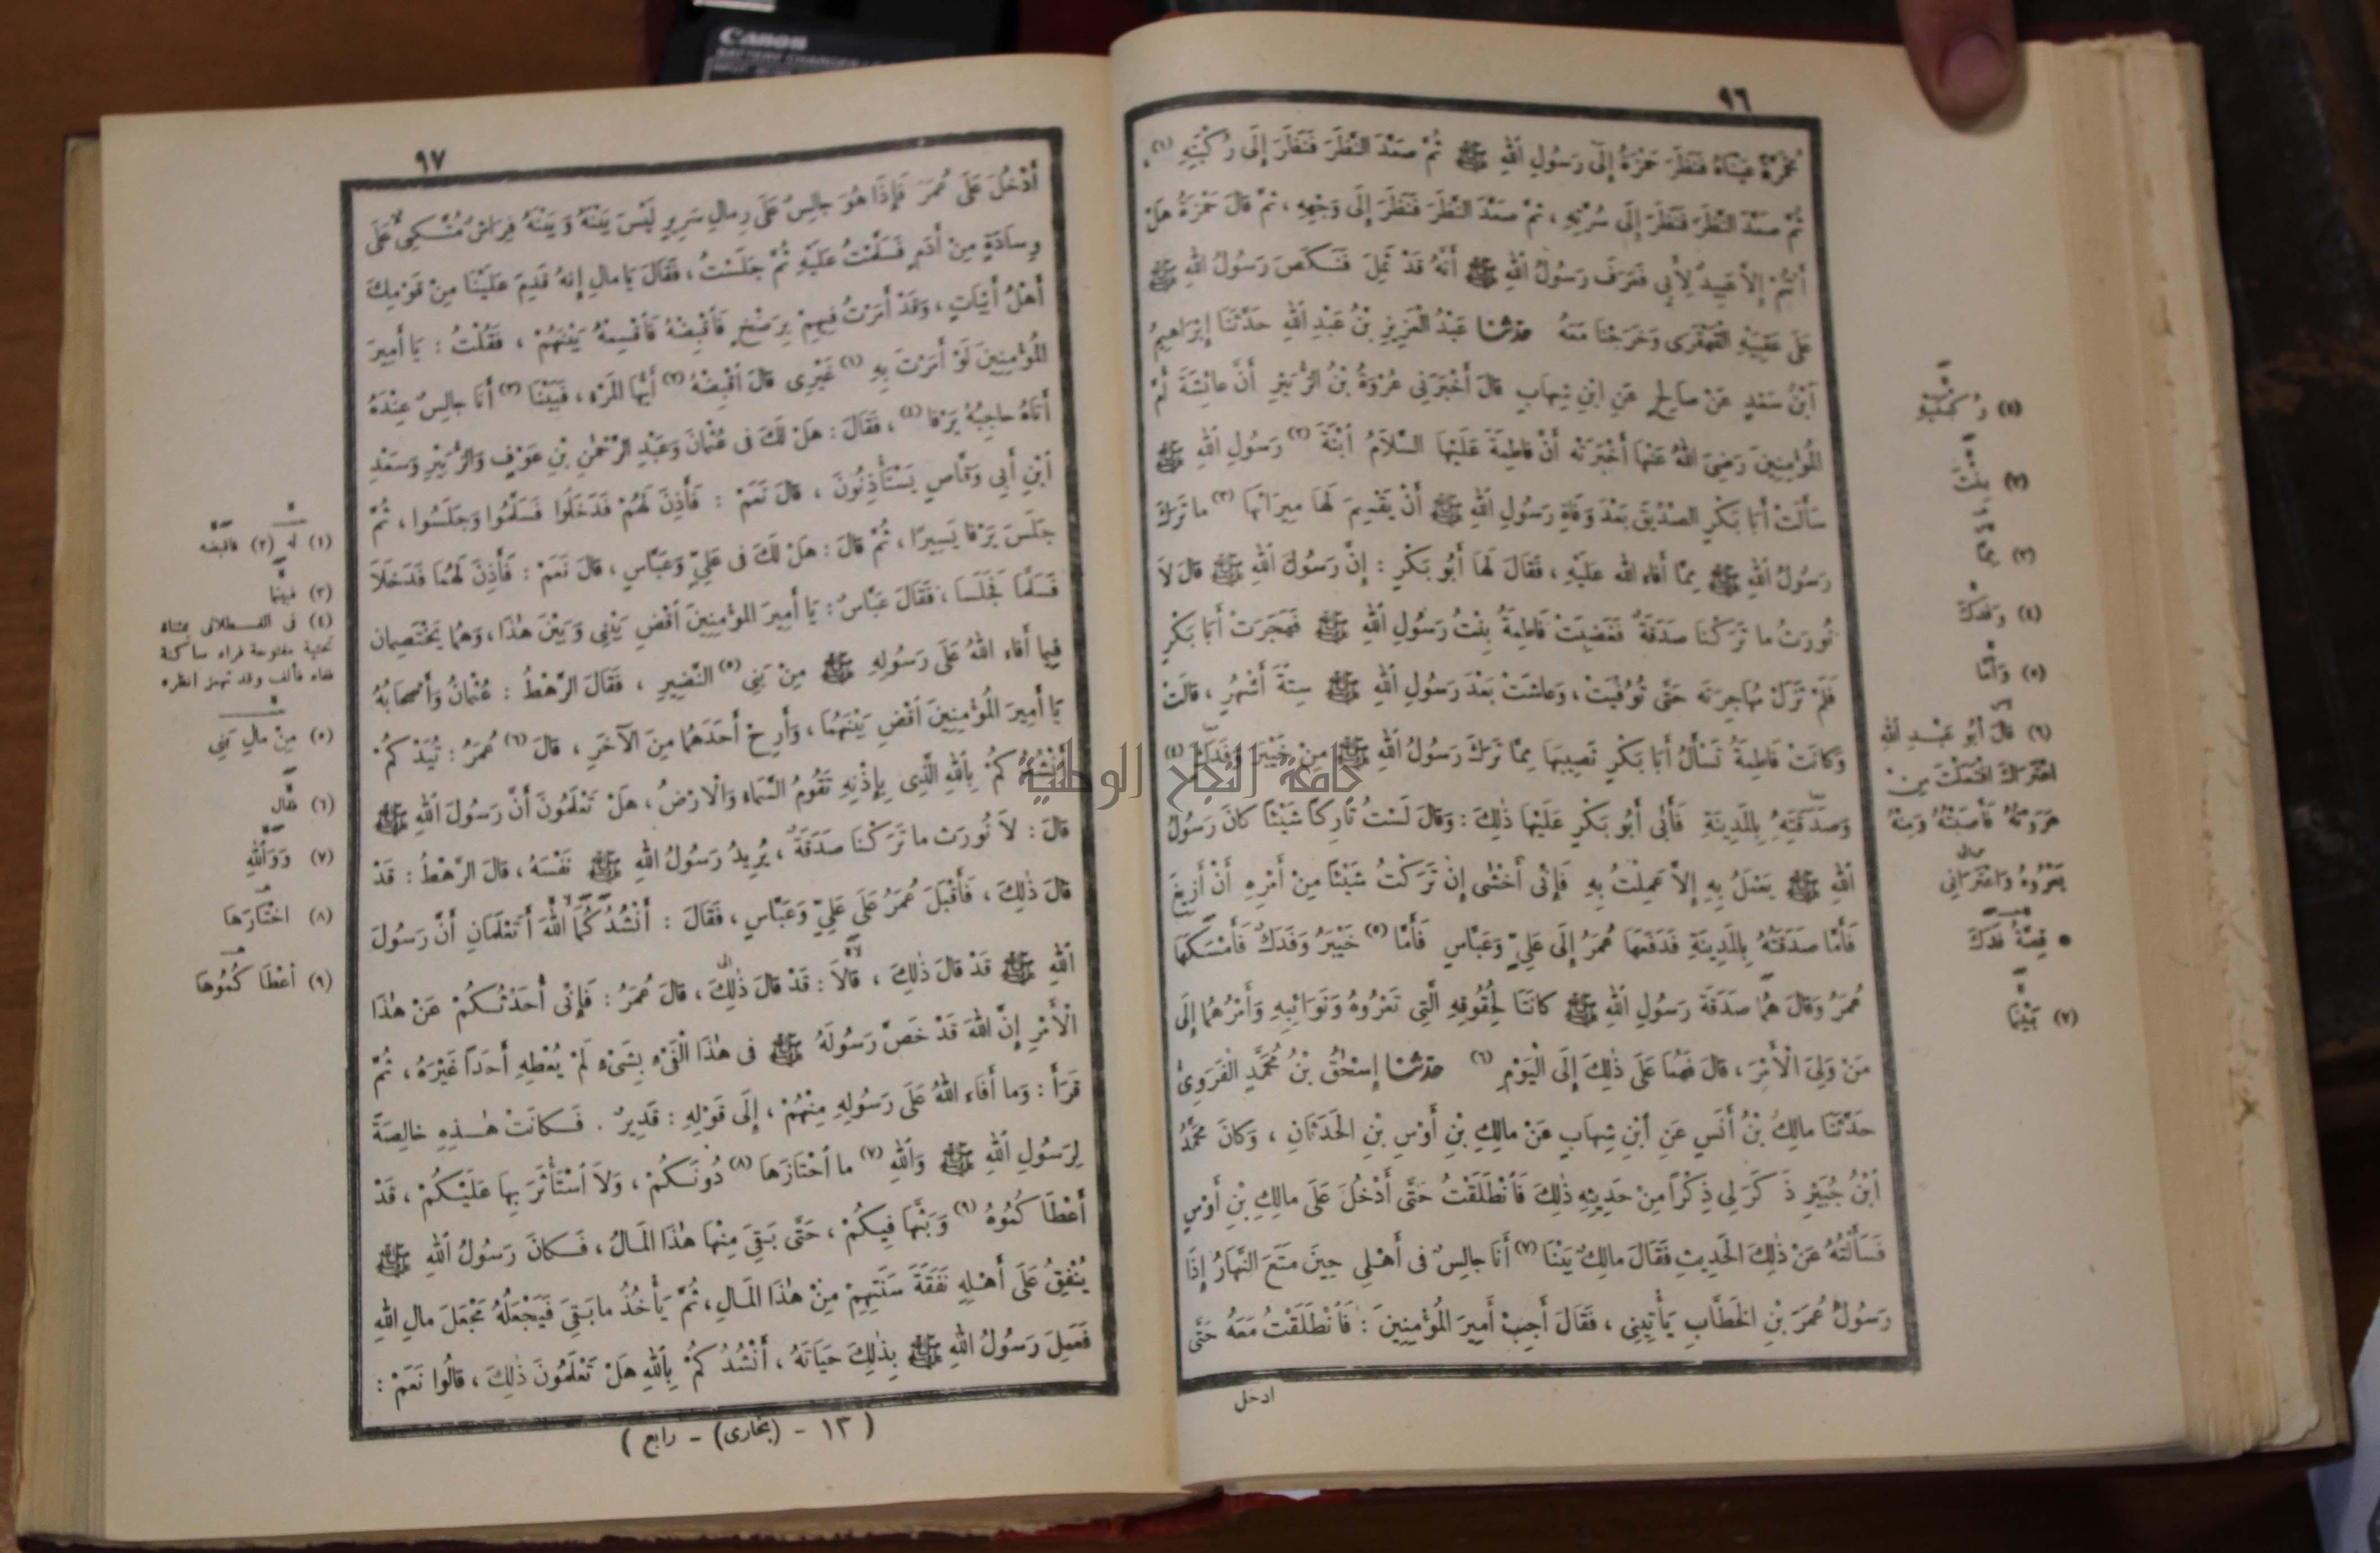 Canon
٩٦
مُحْمَرَّةٌ عَيْنَاهُ فَنَظَرَ حَمْزَةُ إِلَى رَسُولِ اللهِ ﷺ ثُمَّ صَعَّدَ النَّظَرَ فَنَظَرَ إِلَى رُكْبَتِهِ (١)،
ثُمَّ صَعَّدَ النَّظَرَ فَنَظَرَ إِلَى سُرَّتِهِ، ثُمَّ صَعَّدَ النَّظَرَ فَنَظَرَ إِلَى وَجْهِهِ، ثُمَّ قَالَ حَمْزَةُ هَلْ
أَنْتُمْ إِلاَّ عَبِيدٌ لِأَبِي فَعَرَفَ رَسُولُ اللهِ ﷺ أَنَّهُ قَدْ ثَمِلَ فَنَكَصَ رَسُولُ اللهِ ﷺ
عَلَى عَقِبَيْهِ الْقَهْقَرَى وَخَرَجْنَا مَعَهُ حَدَّثَنَا عَبْدُ الْعَزِيزِ بْنُ عَبْدِ اللهِ حَدَّثَنَا إِبْرَاهِيمُ
ابْنُ سَعْدٍ عَنْ صَالِحٍ عَنِ ابْنِ شِهَابٍ قَالَ أَخْبَرَنِي عُرْوَةُ بْنُ الزُّبَيْرِ أَنَّ عَائِشَةَ أُمَّ
الْمُؤْمِنِينَ رَضِيَ اللهُ عَنْهَا أَخْبَرَتْهُ أَنَّ فَاطِمَةَ عَلَيْهَا السَّلاَمُ ابْنَةَ (٢) رَسُولِ اللهِ ﷺ
سَأَلَتْ أَبَا بَكْرٍ الصِّدِّيقَ بَعْدَ وَفَاةِ رَسُولِ اللهِ ﷺ أَنْ يَقْسِمَ لَهَا مِيرَاثَهَا (٣) مَا تَرَكَ
رَسُولُ اللهِ ﷺ مِمَّا أَفَاءَ اللهُ عَلَيْهِ، فَقَالَ لَهَا أَبُو بَكْرٍ : إِنَّ رَسُولَ اللهِ ﷺ قَالَ لاَ
نُورَثُ مَا تَرَكْنَا صَدَقَةٌ فَغَضِبَتْ فَاطِمَةُ بِنْتُ رَسُولِ اللهِ ﷺ فَهَجَرَتْ أَبَا بَكْرٍ
فَلَمْ تَزَلْ مُهَاجِرَتَهُ حَتَّى تُوُفِّيَتْ، وَعَاشَتْ بَعْدَ رَسُولِ اللهِ ﷺ سِتَّةَ أَشْهُرٍ، قَالَتْ
وَكَانَتْ فَاطِمَةُ تَسْأَلُ أَبَا بَكْرٍ نَصِيبَهَا مِمَّا تَرَكَ رَسُولُ اللهِ ﷺ مِنْ خَيْبَرَ وَفَدَكٍ (٤)
وَصَدَقَتِهِ بِالْمَدِينَةِ فَأَبَى أَبُو بَكْرٍ عَلَيْهَا ذٰلِكَ : وَقَالَ لَسْتُ تَارِكاً شَيْئاً كَانَ رَسُولُ
اللهِ ﷺ يَعْمَلُ بِهِ إِلاَّ عَمِلْتُ بِهِ فَإِنِّي أَخْشَى إِنْ تَرَكْتُ شَيْئاً مِنْ أَمْرِهِ أَنْ أَزِيغَ
فَأَمَّا صَدَقَتُهُ بِالْمَدِينَةِ فَدَفَعَهَا عُمَرُ إِلَى عَلِيٍّ وَعَبَّاسٍ فَأَمَّا (٥) خَيْبَرُ وَفَدَكٌ فَأَمْسَكَهَا
عُمَرُ وَقَالَ هُمَا صَدَقَةُ رَسُولِ اللهِ ﷺ كَانَتَا لِحُقُوقِهِ الَّتِي تَعْرُوهُ وَنَوَائِبِهِ وَأَمْرُهُمَا إِلَى
مَنْ وَلِيَ الْأَمْرَ، قَالَ فَهُمَا عَلَى ذٰلِكَ إِلَى الْيَوْمِ (٦) حَدَّثَنَا إِسْحٰقُ بْنُ مُحَمَّدٍ الْفَرْوِيُّ
حَدَّثَنَا مَالِكُ بْنُ أَنَسٍ عَنِ ابْنِ شِهَابٍ عَنْ مَالِكِ بْنِ أَوْسِ بْنِ الْحَدَثَانِ، وَكَانَ مُحَمَّدُ
ابْنُ جُبَيْرٍ ذَكَرَ لِي ذِكْراً مِنْ حَدِيثِهِ ذٰلِكَ فَانْطَلَقْتُ حَتَّى أَدْخُلَ عَلَى مَالِكِ بْنِ أَوْسٍ
فَسَأَلْتُهُ عَنْ ذٰلِكَ الْحَدِيثِ فَقَالَ مَالِكٌ بَيْنَا (٧) أَنَا جَالِسٌ فِي أَهْلِي حِينَ مَتَعَ النَّهَارُ إِذَا
رَسُولُ عُمَرَ بْنِ الْخَطَّابِ يَأْتِينِي، فَقَالَ أَجِبْ أَمِيرَ الْمُؤْمِنِينَ : فَانْطَلَقْتُ مَعَهُ حَتَّى
ادخل
(٢) بِنْتَ
(٣) مِمَّا
(٤) وَفَدَكَ
(٥) وَأَمَّا
(٦) قَالَ أَبُو عَبْدِ اللهِ
اعْتَرَاكَ افْتَعَلْتَ مِنْ
عَرَوْتُهُ فَأَصَبْتُهُ وَمِنْهُ
يَعْرُوهُ وَاعْتَرَانِي
● قِصَّةُ فَدَكَ
(٧) بَيْنَمَا
جامعة النجاح الوطنية
٩٧
أَدْخُلَ عَلَى عُمَرَ فَإِذَا هُوَ جَالِسٌ عَلَى رِمَالِ سَرِيرٍ لَيْسَ بَيْنَهُ وَبَيْنَهُ فِرَاشٌ مُتَّكِئٌ عَلَى
وِسَادَةٍ مِنْ أَدَمٍ فَسَلَّمْتُ عَلَيْهِ ثُمَّ جَلَسْتُ، فَقَالَ يَا مَالِ إِنَّهُ قَدِمَ عَلَيْنَا مِنْ قَوْمِكَ
أَهْلُ أَبْيَاتٍ، وَقَدْ أَمَرْتُ فِيهِمْ بِرَضْخٍ فَاقْبِضْهُ فَاقْسِمْهُ بَيْنَهُمْ، فَقُلْتُ : يَا أَمِيرَ
الْمُؤْمِنِينَ لَوْ أَمَرْتَ بِهِ (١) غَيْرِي قَالَ اقْبِضْهُ (٢) أَيُّهَا الْمَرْءُ، فَبَيْنَا (٣) أَنَا جَالِسٌ عِنْدَهُ
أَتَاهُ حَاجِبُهُ يَرْفَا (٤)، فَقَالَ : هَلْ لَكَ فِي عُثْمَانَ وَعَبْدِ الرَّحْمٰنِ بْنِ عَوْفٍ وَالزُّبَيْرِ وَسَعْدِ
ابْنِ أَبِي وَقَّاصٍ يَسْتَأْذِنُونَ، قَالَ نَعَمْ : فَأَذِنَ لَهُمْ فَدَخَلُوا فَسَلَّمُوا وَجَلَسُوا، ثُمَّ
جَلَسَ يَرْفَا يَسِيرًا، ثُمَّ قَالَ : هَلْ لَكَ فِي عَلِيٍّ وَعَبَّاسٍ، قَالَ نَعَمْ : فَأَذِنَ لَهُمَا فَدَخَلاَ
فَسَلَّمَا فَجَلَسَا، فَقَالَ عَبَّاسٌ : يَا أَمِيرَ الْمُؤْمِنِينَ اقْضِ بَيْنِي وَبَيْنَ هٰذَا، وَهُمَا يَخْتَصِمَانِ
فِيمَا أَفَاءَ اللهُ عَلَى رَسُولِهِ ﷺ مِنْ بَنِي (٥) النَّضِيرِ، فَقَالَ الرَّهْطُ : عُثْمَانُ وَأَصْحَابُهُ
يَا أَمِيرَ الْمُؤْمِنِينَ اقْضِ بَيْنَهُمَا، وَأَرِحْ أَحَدَهُمَا مِنَ الْآخَرِ، قَالَ (٦) عُمَرُ : تَيْدَكُمْ
أَنْشُدُكُمْ بِاللهِ الَّذِي بِإِذْنِهِ تَقُومُ السَّمَاءُ وَالْأَرْضُ، هَلْ تَعْلَمُونَ أَنَّ رَسُولَ اللهِ ﷺ
قَالَ : لاَ نُورَثُ مَا تَرَكْنَا صَدَقَةٌ، يُرِيدُ رَسُولُ اللهِ ﷺ نَفْسَهُ، قَالَ الرَّهْطُ : قَدْ
قَالَ ذٰلِكَ، فَأَقْبَلَ عُمَرُ عَلَى عَلِيٍّ وَعَبَّاسٍ، فَقَالَ : أَنْشُدُكُمَا اللهَ أَتَعْلَمَانِ أَنَّ رَسُولَ
اللهِ ﷺ قَدْ قَالَ ذٰلِكَ، قَالاَ : قَدْ قَالَ ذٰلِكَ، قَالَ عُمَرُ : فَإِنِّي أُحَدِّثُكُمْ عَنْ هٰذَا
الْأَمْرِ إِنَّ اللهَ قَدْ خَصَّ رَسُولَهُ ﷺ فِي هٰذَا الْفَيْءِ بِشَيْءٍ لَمْ يُعْطِهِ أَحَدًا غَيْرَهُ، ثُمَّ
قَرَأَ : وَمَا أَفَاءَ اللهُ عَلَى رَسُولِهِ مِنْهُمْ، إِلَى قَوْلِهِ : قَدِيرٌ . فَكَانَتْ هٰذِهِ خَالِصَةً
لِرَسُولِ اللهِ ﷺ وَاللهِ (٧) مَا احْتَازَهَا (٨) دُونَكُمْ، وَلاَ اسْتَأْثَرَ بِهَا عَلَيْكُمْ، قَدْ
أَعْطَاكُمُوهُ (٩) وَبَثَّهَا فِيكُمْ، حَتَّى بَقِيَ مِنْهَا هٰذَا الْمَالُ، فَكَانَ رَسُولُ اللهِ ﷺ
يُنْفِقُ عَلَى أَهْلِهِ نَفَقَةَ سَنَتِهِمْ مِنْ هٰذَا الْمَالِ، ثُمَّ يَأْخُذُ مَا بَقِيَ فَيَجْعَلُهُ مَجْعَلَ مَالِ اللهِ
فَعَمِلَ رَسُولُ اللهِ ﷺ بِذٰلِكَ حَيَاتَهُ، أَنْشُدُكُمْ بِاللهِ هَلْ تَعْلَمُونَ ذٰلِكَ، قَالُوا نَعَمْ :
(١٣ - (بخارى) - رابع)
(١) له (٢) فاقبضه
(٣) فبينما
(٤) فى القسطلانى بمثناة
تحتية مفتوحة فراء ساكنة
ففاء فألف وقد تهمز انظره
(٥) مِنْ مَالِ بَنِي
(٦) فقال
(٧) وَوَاللهِ
(٨) اخْتَارَهَا
(٩) أَعْطَاكُمُوهَا